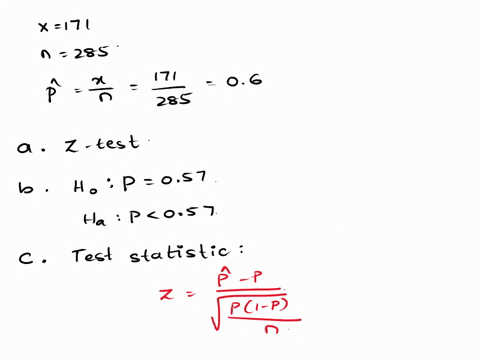 x = 171
n = 285
p̂ = x/n = 171/285 = 0.6
a. Z-test
b. H₀ : P = 0.57
Hₐ : P < 0.57
c. Test statistic :
z = (p̂ - P)/√(P(1-P)/n)